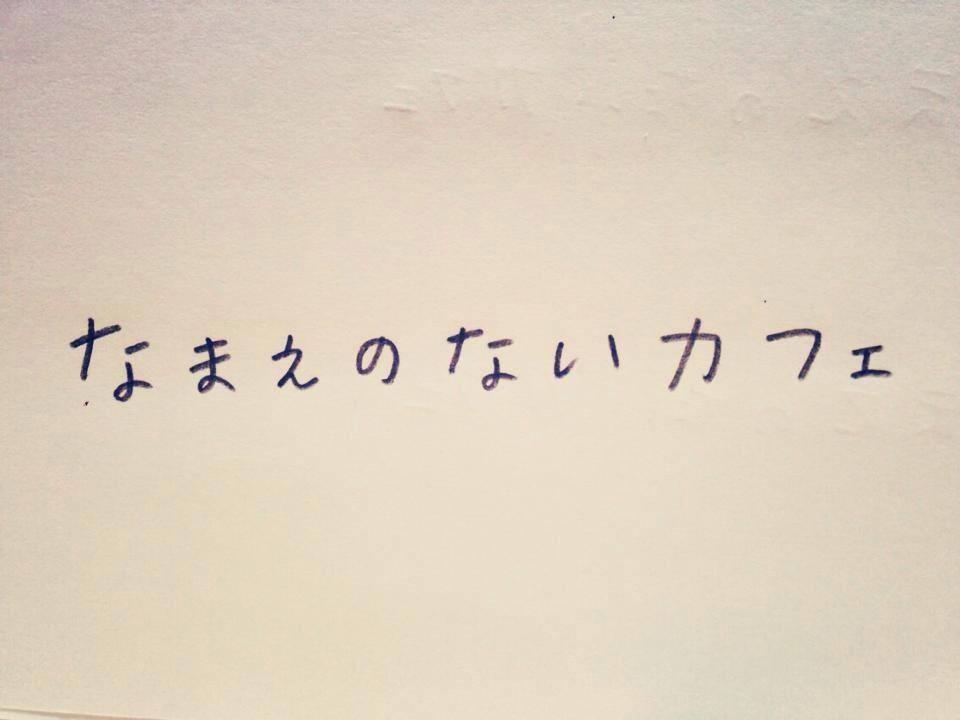 なまえのないカフェ